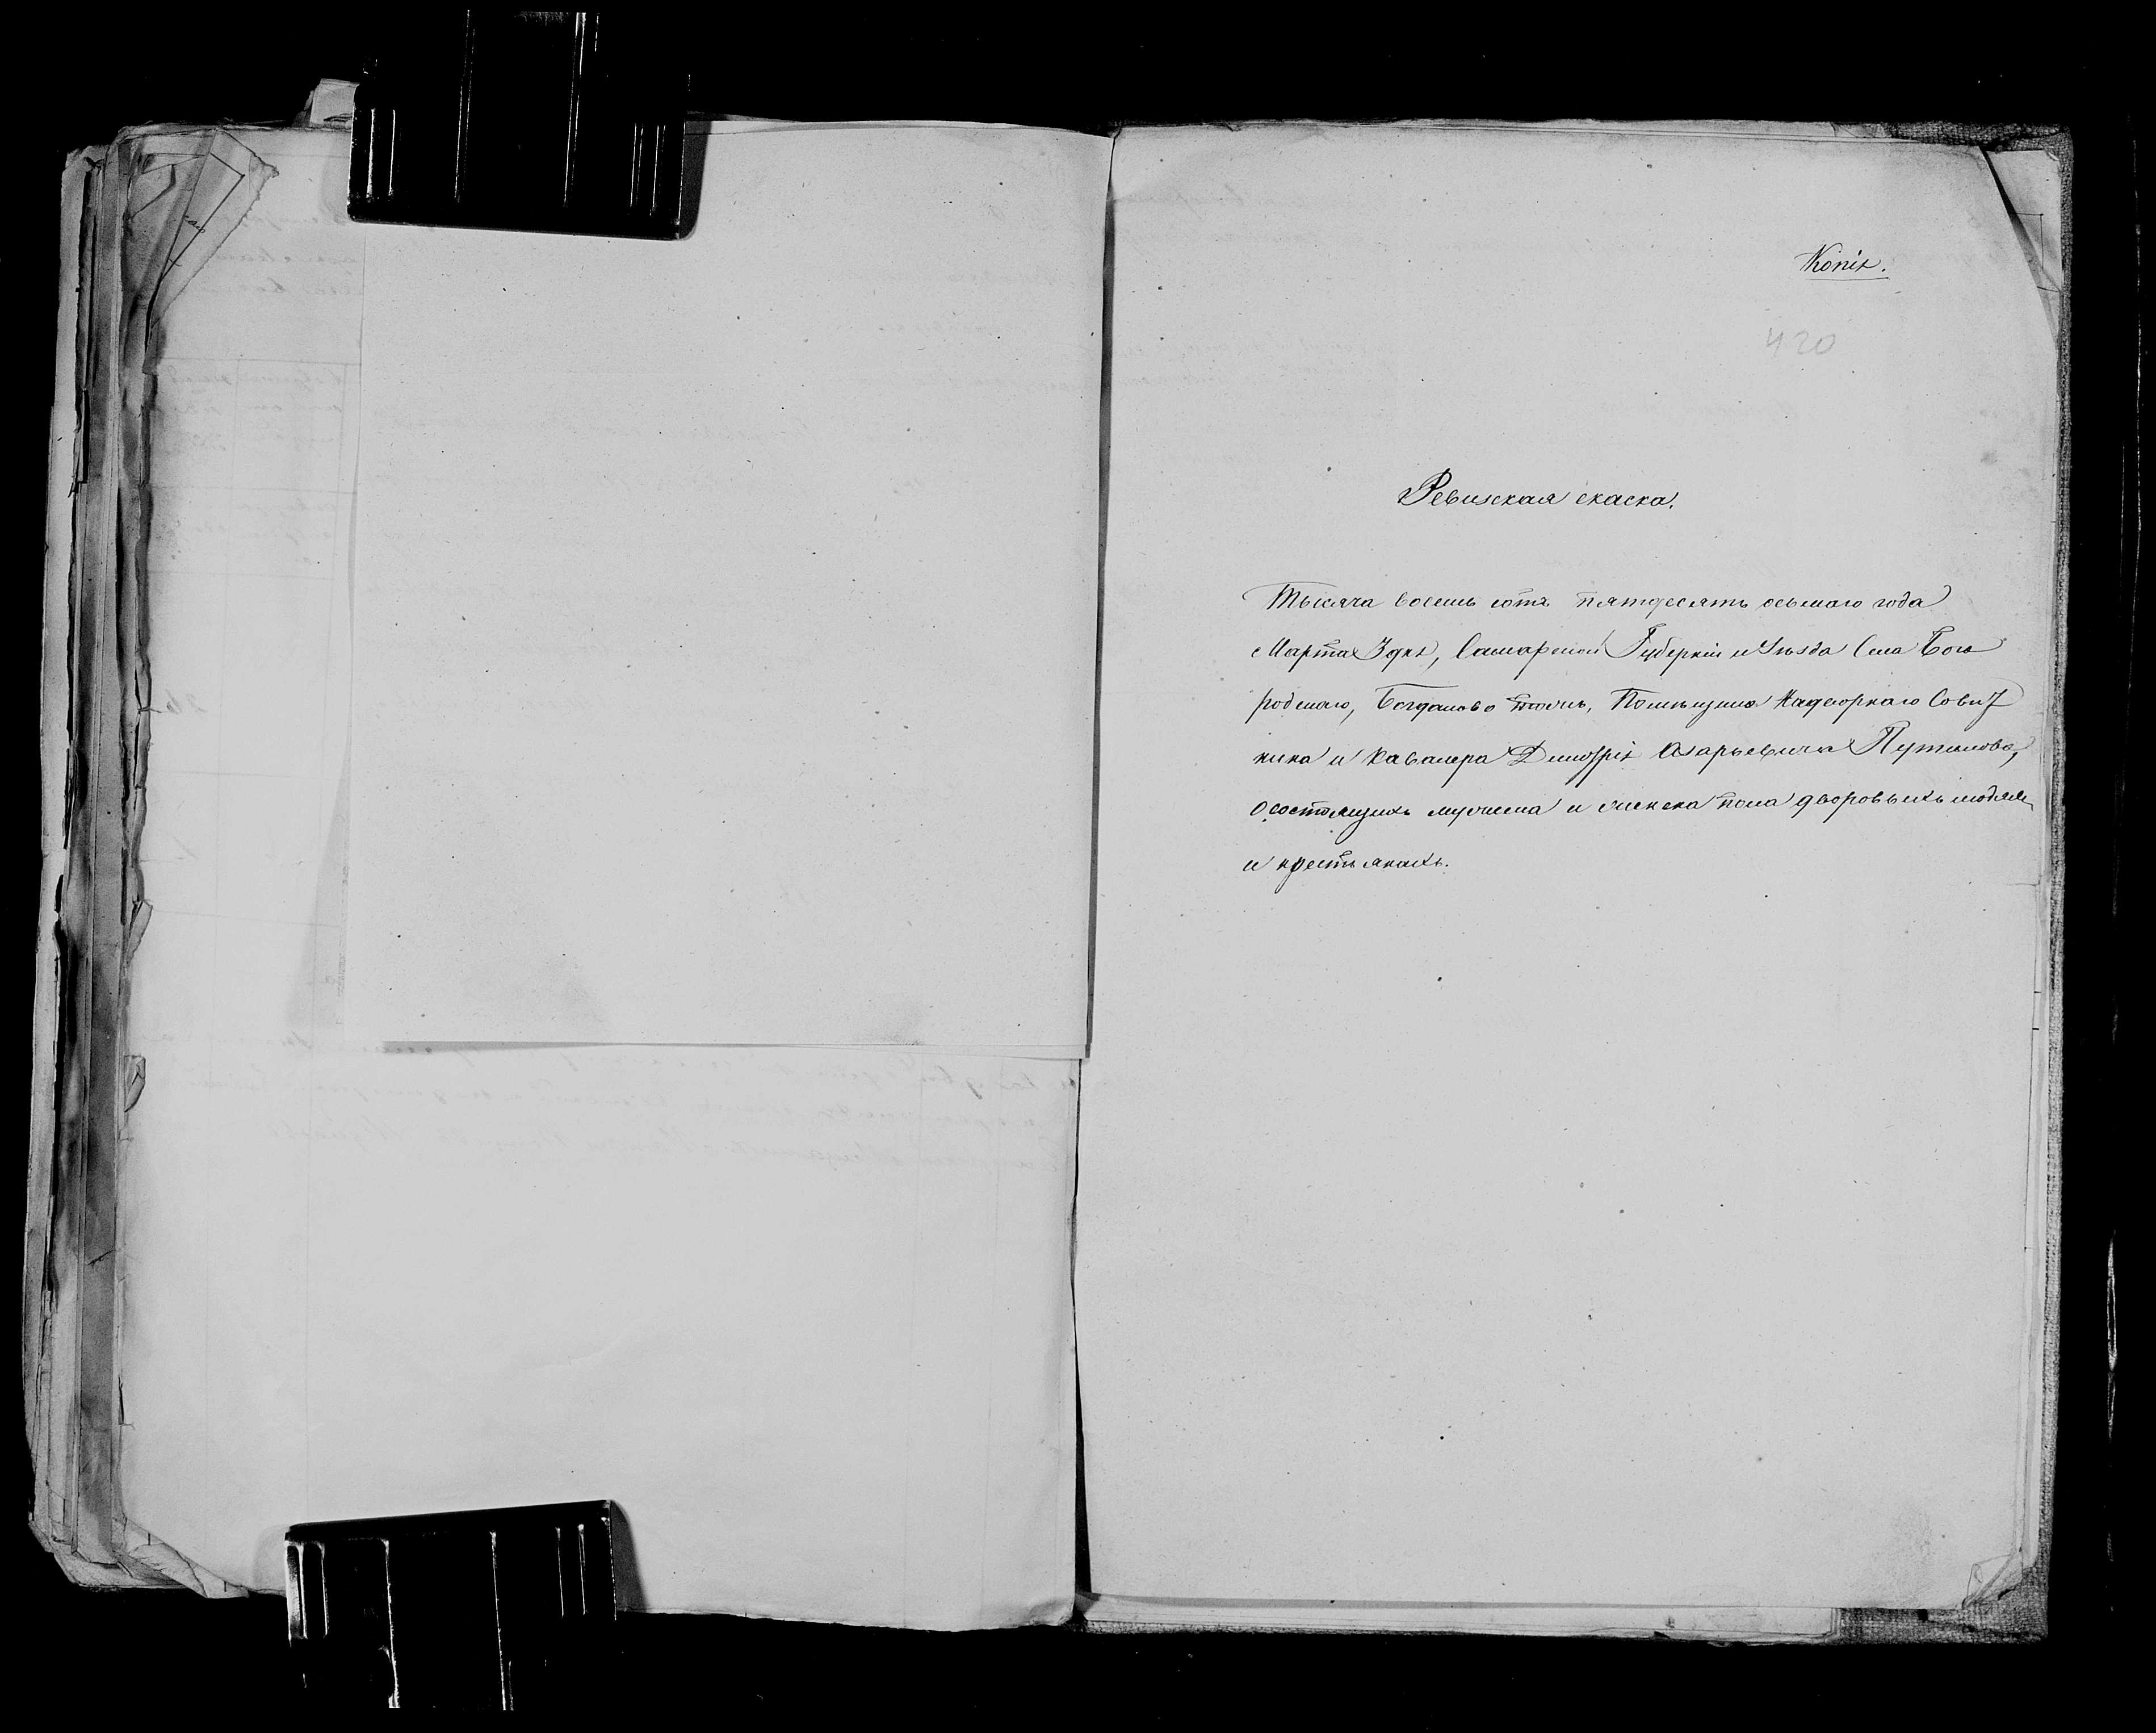 Копія.
420
Ревизская скаска.
Тысяча восемь сотъ пятдесятъ осьмаго года
Марта дня, Самарской Губерніи и Уѣзда Села Бого
родскаго, Богданово тожъ, Помѣщика Надворнаго Совѣт
ника и Кавалера Дмитрія Азарьевича Путилова,
о состоящихъ мужеска и женска пола дворовыхъ людяхъ
и крестьянахъ.